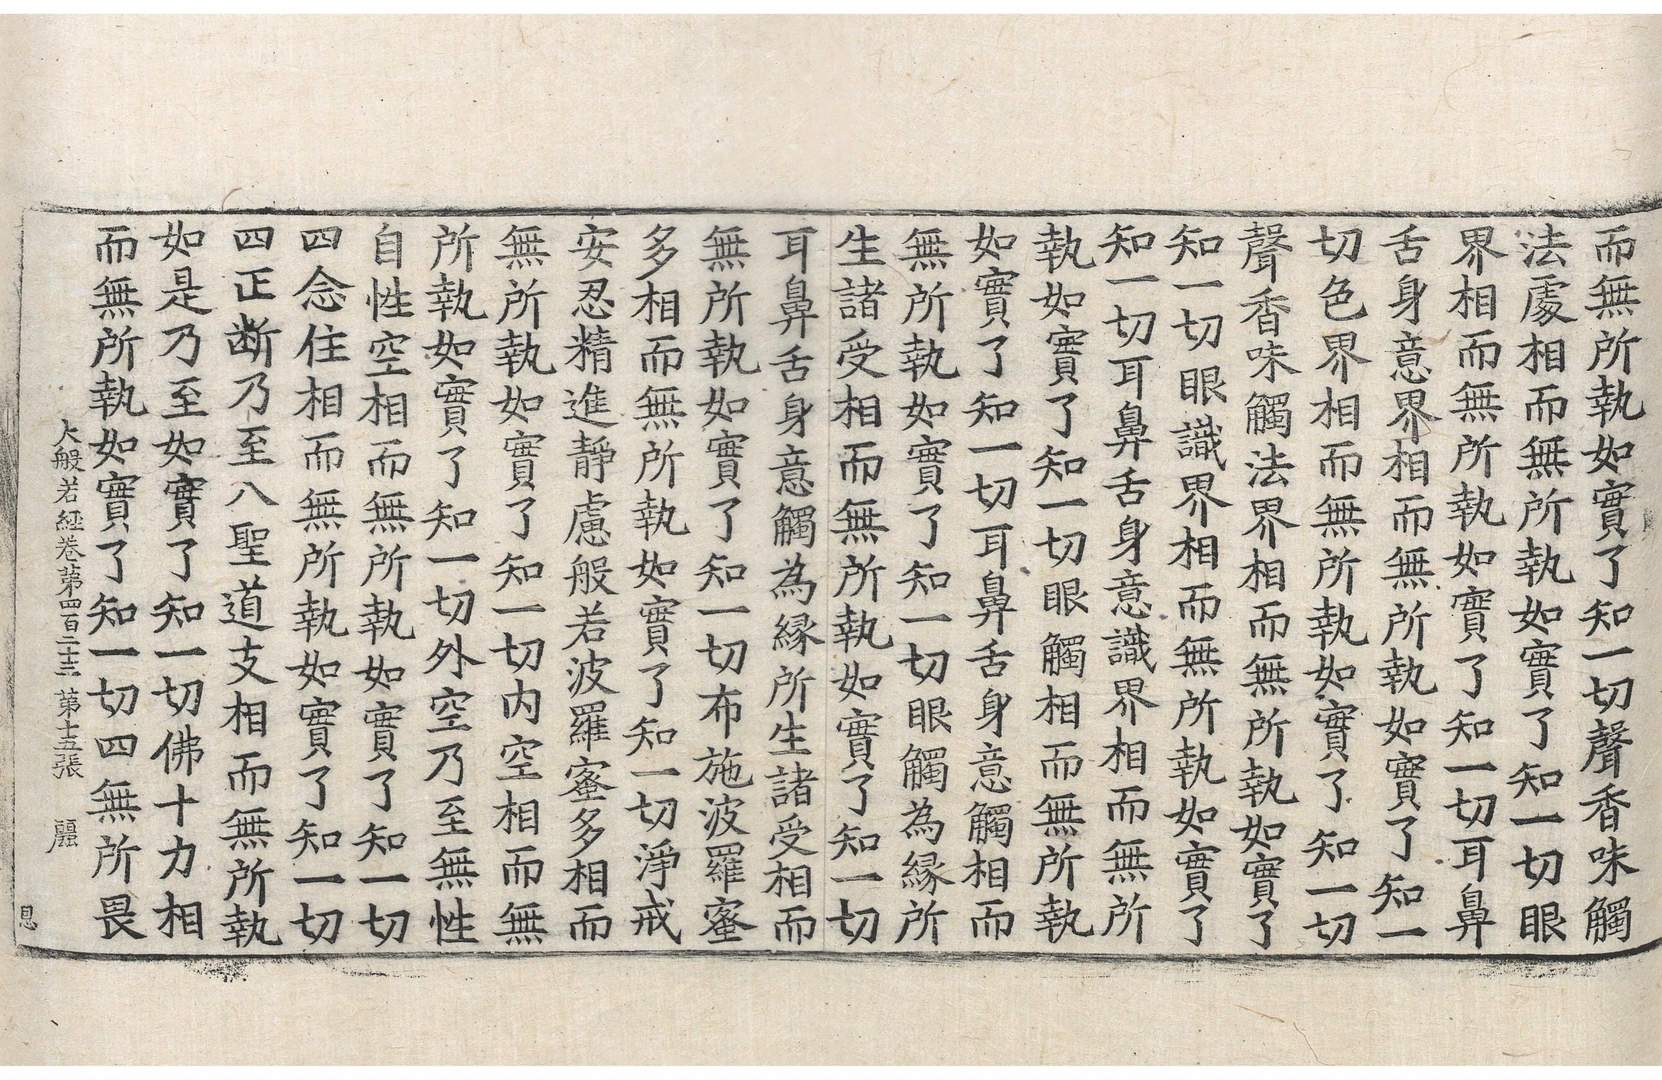 而無所執如實了知一切聲香味觸
法處相而無所執如實了知一切眼
界相而無所執如實了知一切耳鼻
舌身意界相而無所執如實了知一
切色界相而無所執如實了知一切
聲香味觸法界相而無所執如實了
知一切眼識界相而無所執如實了
知一切耳鼻舌身意識界相而無所
執如實了知一切眼觸相而無所執
如實了知一切耳鼻舌身意觸相而
無所執如實了知一切眼觸為緣所
生諸受相而無所執如實了知一切
耳鼻舌身意觸為緣所生諸受相而
無所執如實了知一切布施波羅蜜
多相而無所執如實了知一切淨戒
安忍精進靜慮般若波羅蜜多相而
無所執如實了知一切内空相而無
所執如實了知一切外空乃至無性
自性空相而無所執如實了知一切
四念住相而無所執如實了知一切
四正断乃至八聖道支相而無所執
如是乃至如實了知一切佛十力相
而無所執如實了知一切四無所畏
大般若經卷第四百二十三 第十五張 麗